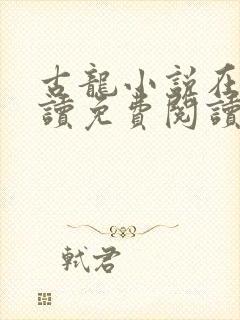 古龍小說在
讀免費閱讀
軾君